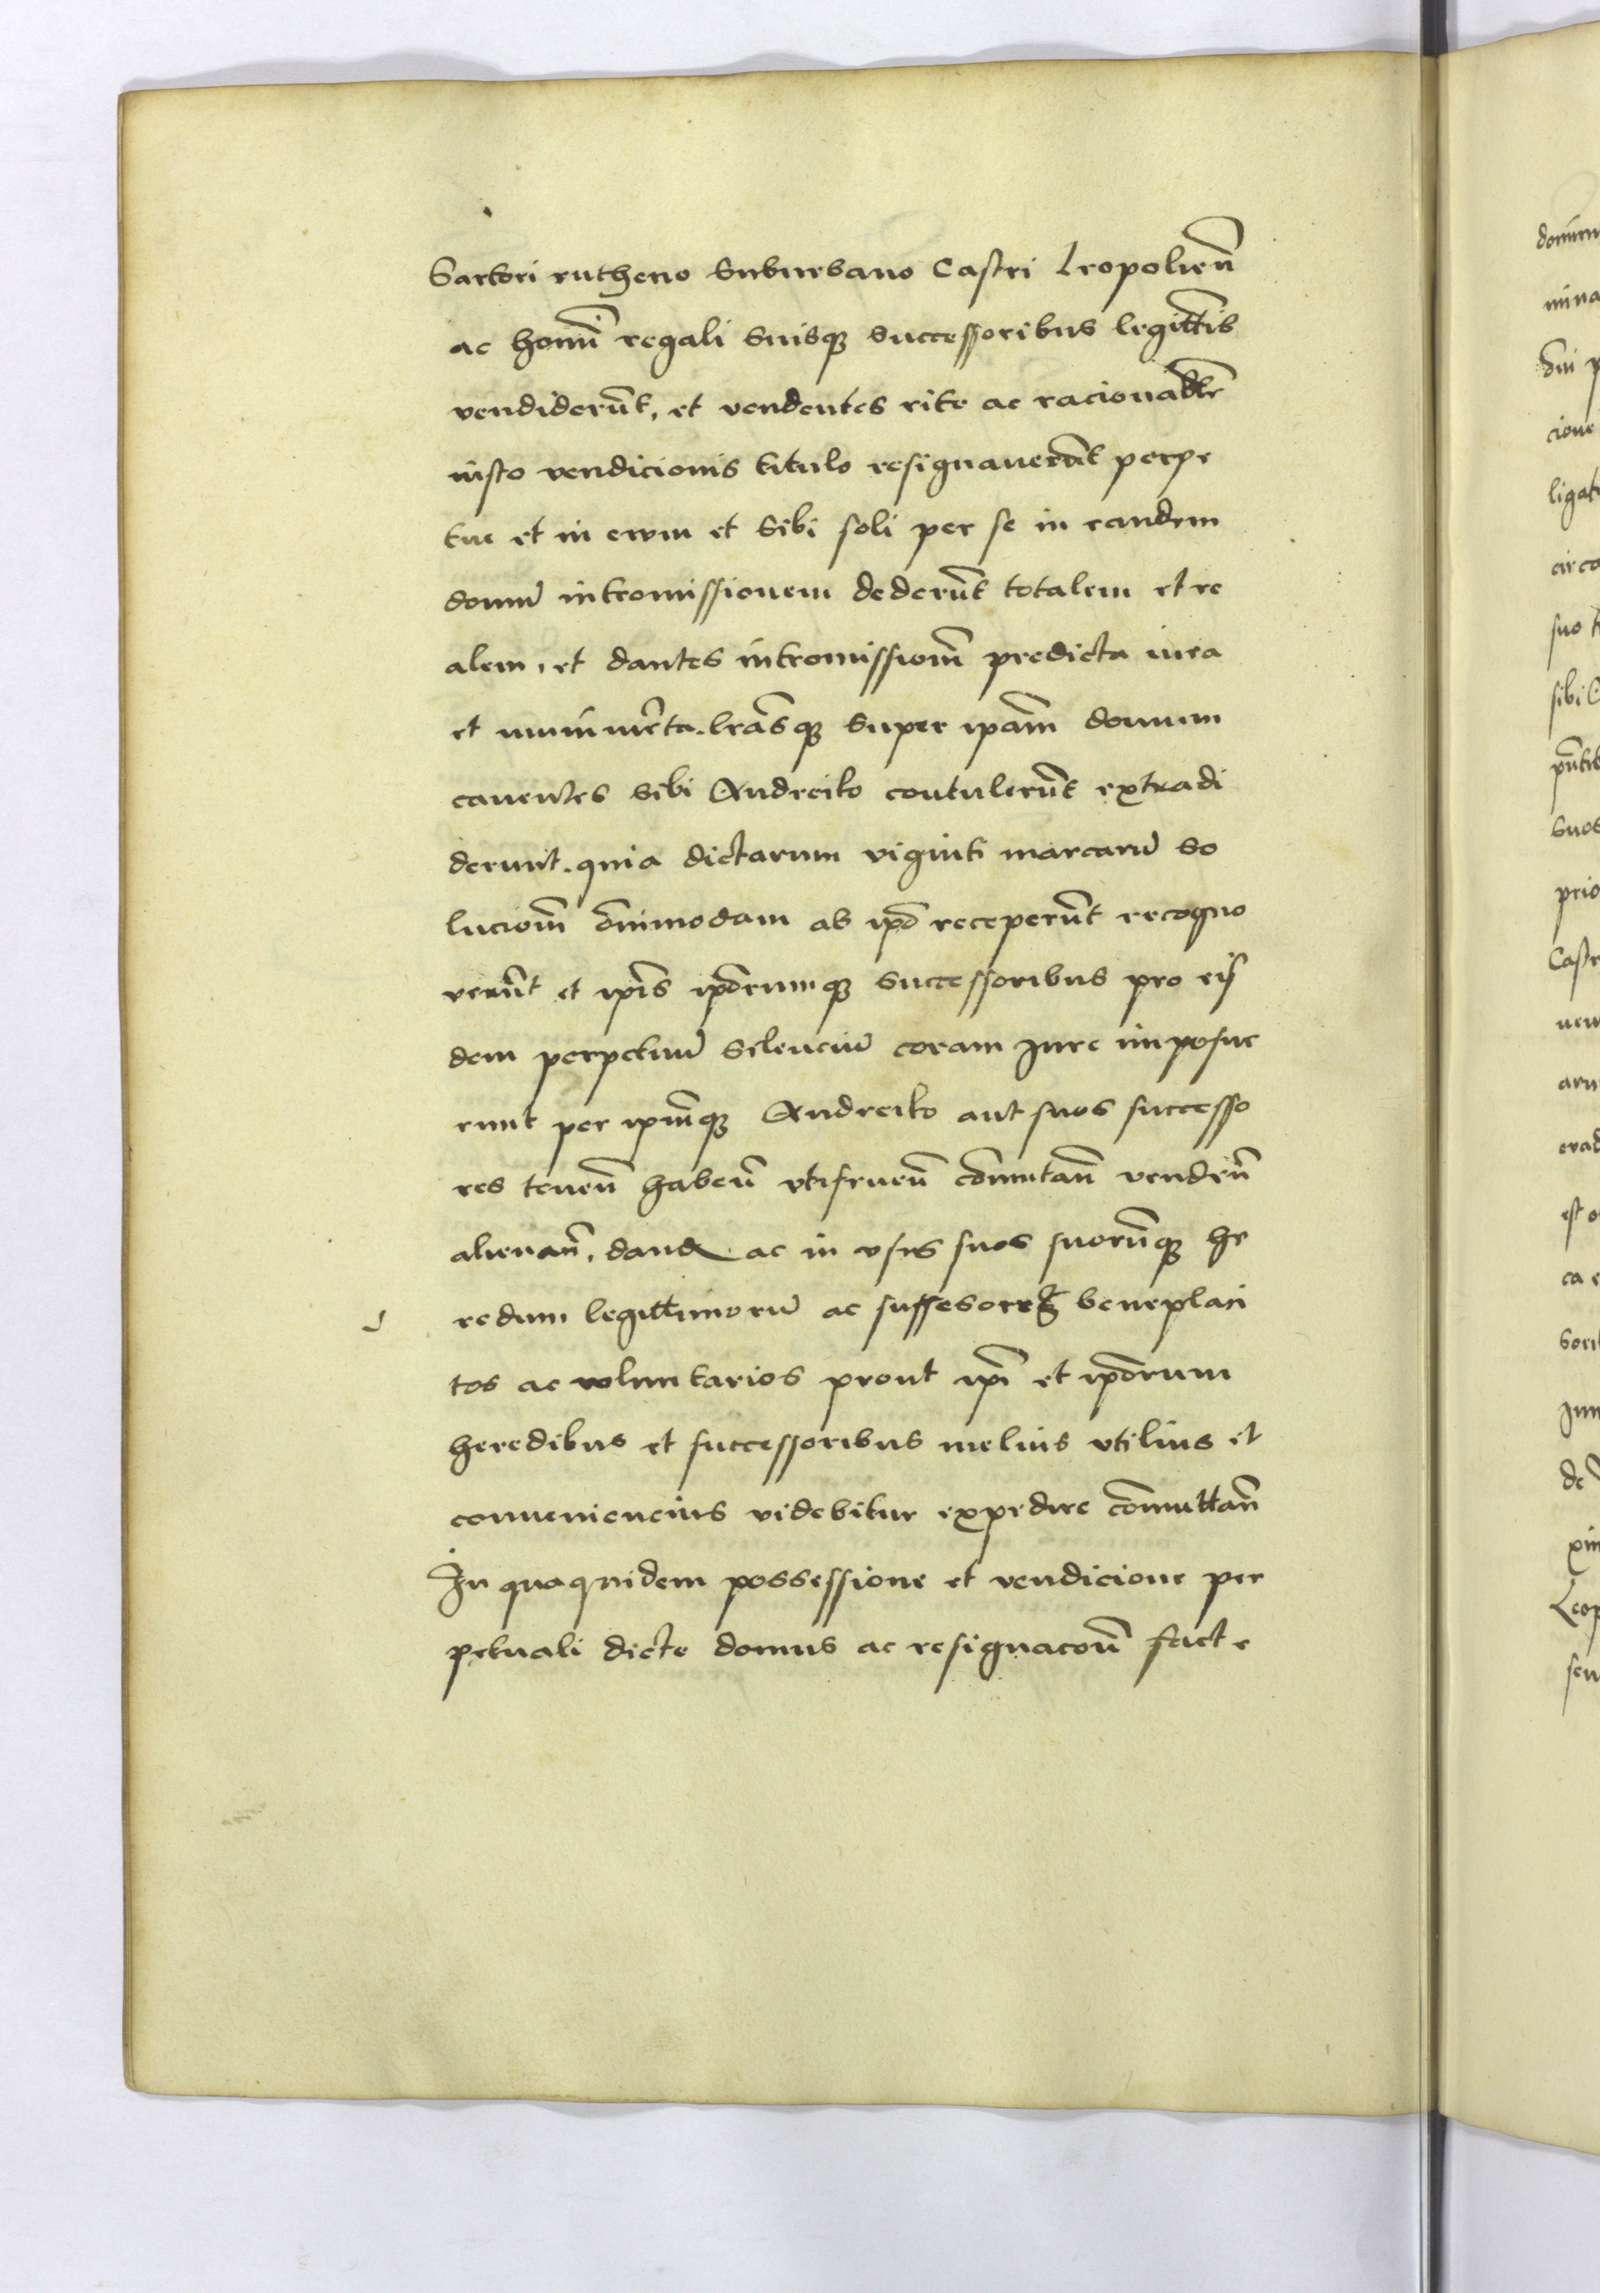 Sartori rutheno Suburbano Castri Leopolień
ac homī regali suisq; successoribus legittīs
vendiderūt, et vendentes rite ac racionabłr
iusto vendicionis titulo resignauerūt perpe
tue et in ewm et sibi soli per se in eandem
domū intromissionem dederūt totalem et re
alem, et dantes intromissiōm predicta iura
et munimēta. lrāsq; super ipām domum
cauentes sibi Andreiko contulerūt extradi
derunt. quia dictarum viginti marcarū so
luciōm ōnimodam ab ipō receperūt recogno
verūt et ipīs ipōrumq; successoribus pro eis
dem perpetuū silenciū coram Jure imposue
runt per ipūmq; Andreiko aut suos successo
res teneń habeń vtifrueń cōmutań vendeń
alienań, dand ac in vsus suos suorūq; he
redum legittimorū ac sussesorꝝ beneplaci
tos ac voluntarios prout ipī et ipōrum
heredibus et successoribus melius vtilius et
conueniencius videbitur expedire cōmuttań
In quaquidem possessione et vendicione per
petuali dicte domus ac resignacōń facte
domum
mina
dn̄i p
cione
ligat
circa
suo t
sibi
pn̄tib
suos
prio
Castr
aru
erad
est o
ca e
sorib
de
Leop
seu